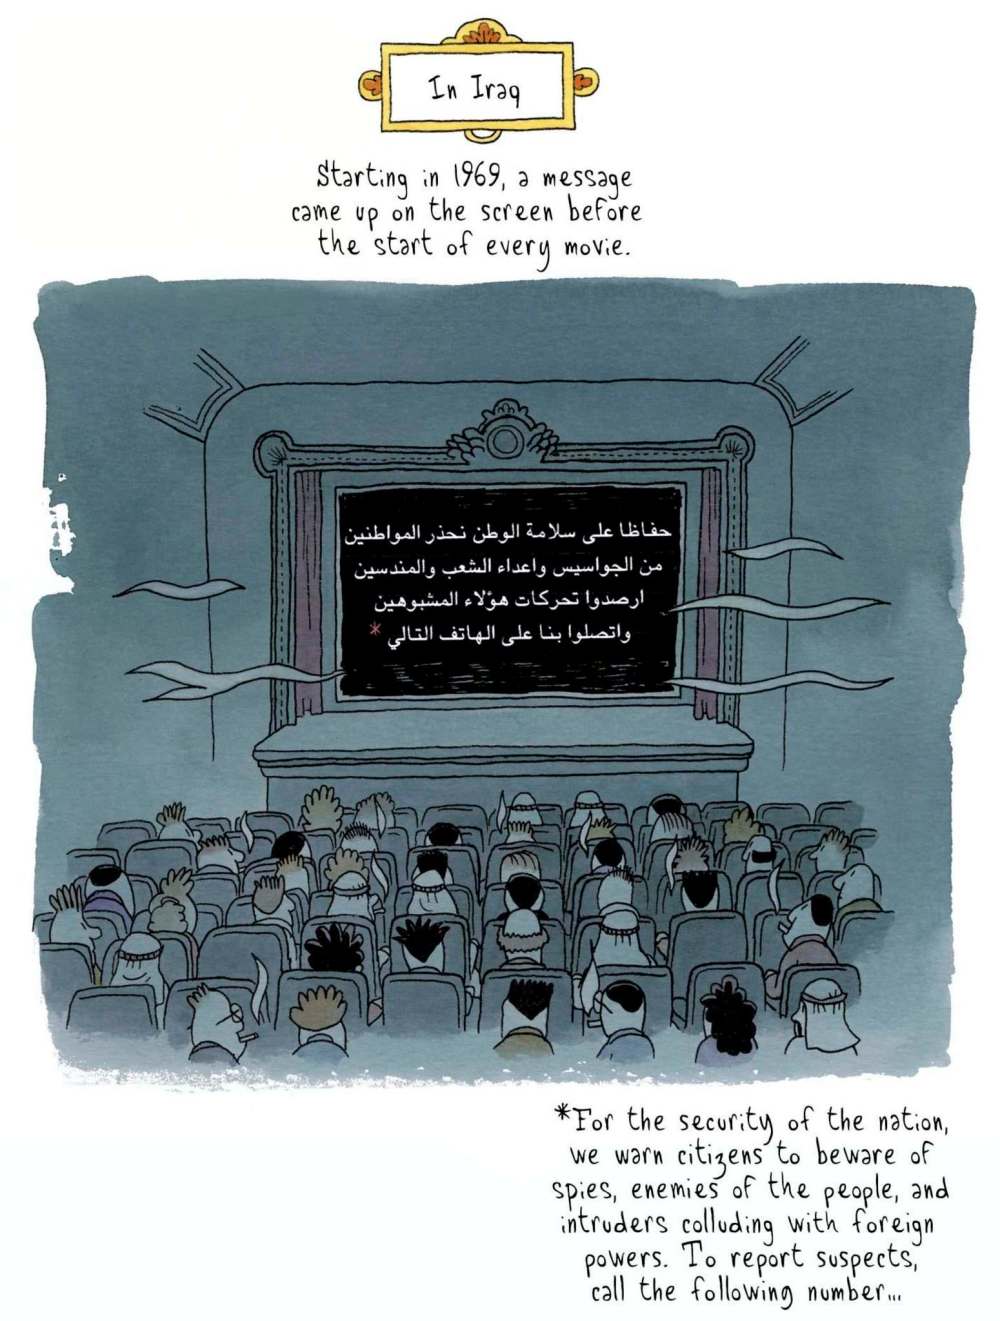 In Iraq
Starting in 1969, a message
came up on the screen before
the start of every movie.
حفاظا على سلامة الوطن نحذر المواطنين
من الجواسيس واعداء الشعب والمندسين
ارصدوا تحركات هؤلاء المشبوهين
واتصلوا بنا على الهاتف التالي *
*For the security of the nation,
we warn citizens to beware of
spies, enemies of the people, and
intruders colluding with foreign
powers. To report suspects,
call the following number...